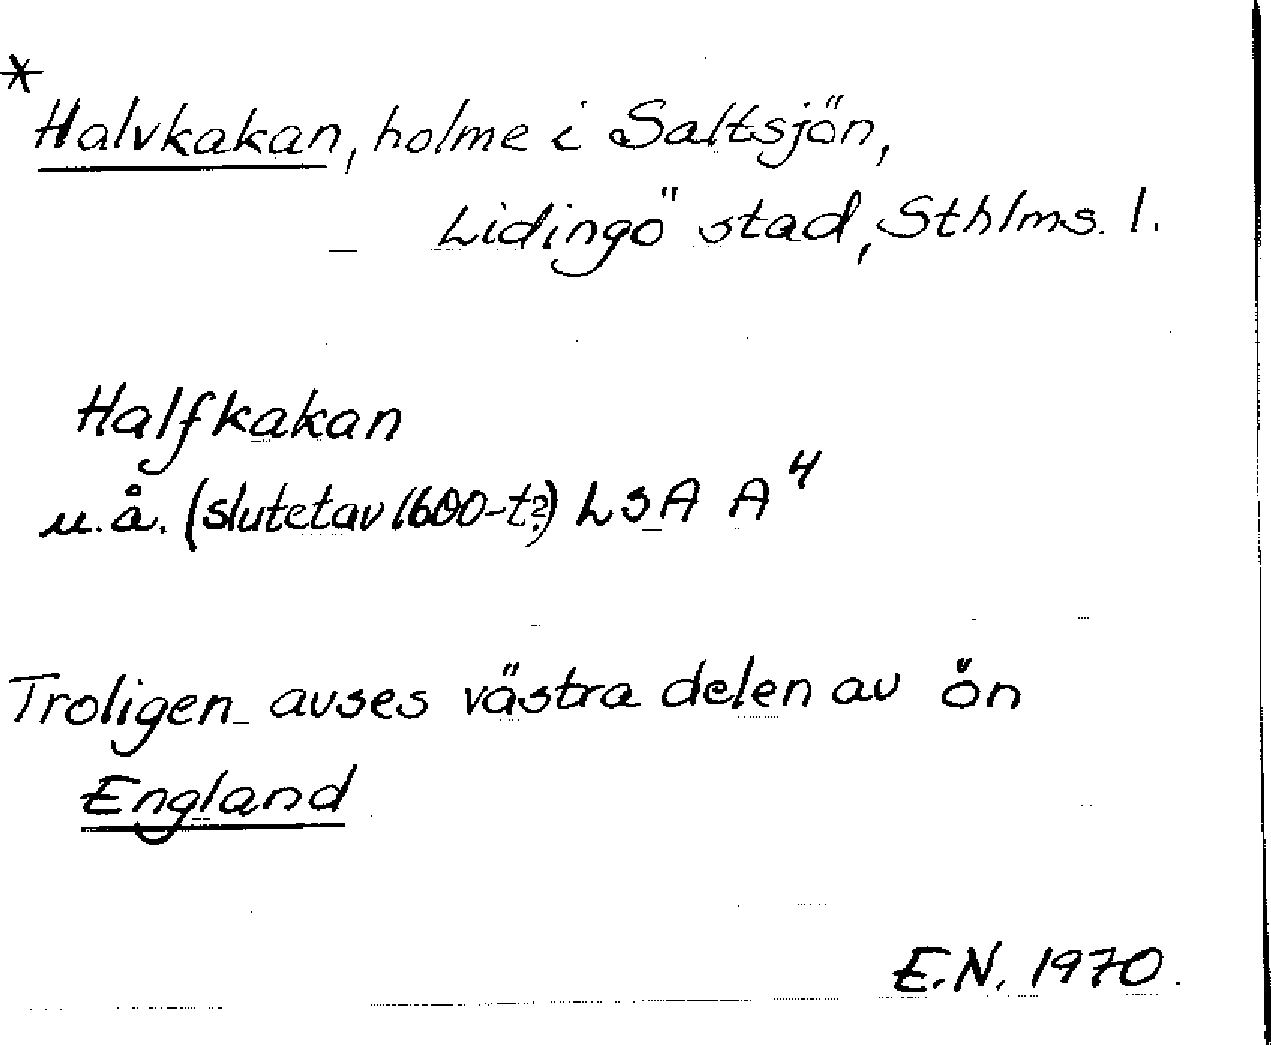 *
Halvkakan, holme i Saltsjön,
Lidingö stad, Sthlms. l.
Halfkakan
u.å. (slutet av 1600-t?) LSA A4
Troligen avses västra delen av ön
England
E.N. 1970.